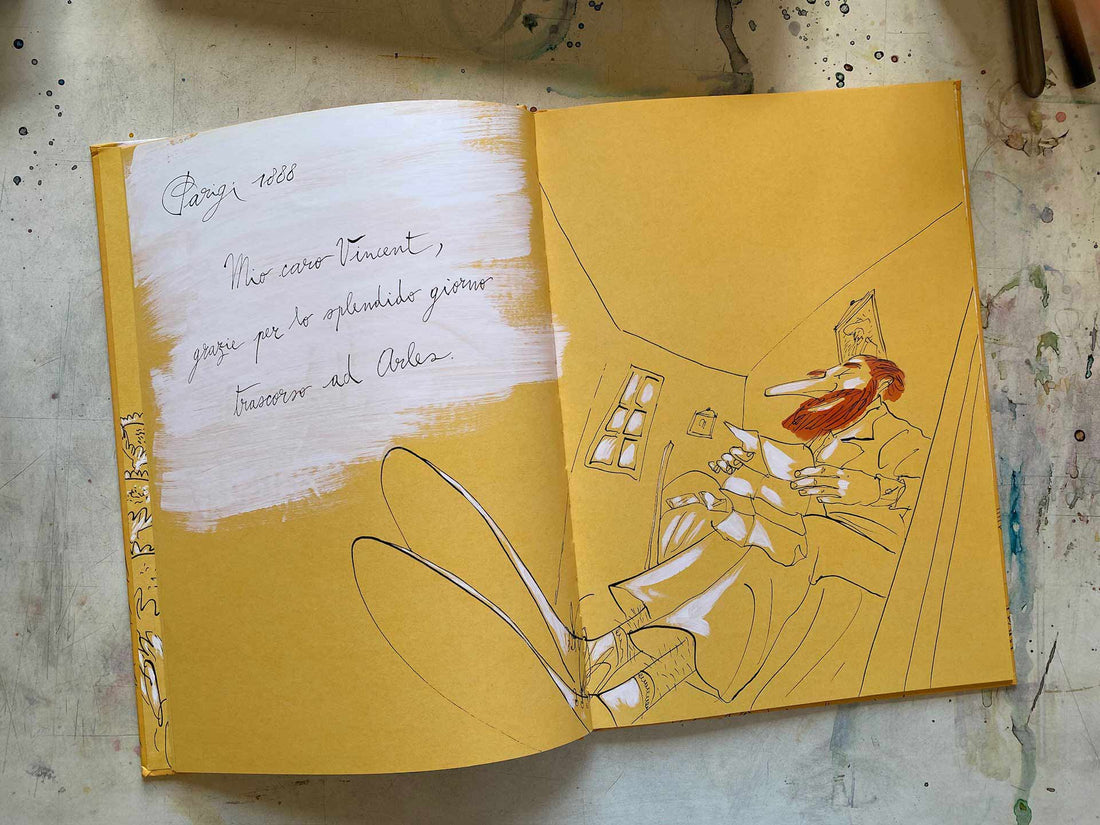 Parigi 1888
Mio caro Vincent,
grazie per lo splendido giorno
trascorso ad Arles.